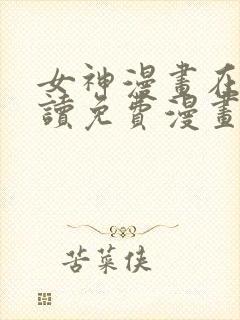 女神漫畫在
讀免費漫畫
苦菜俠